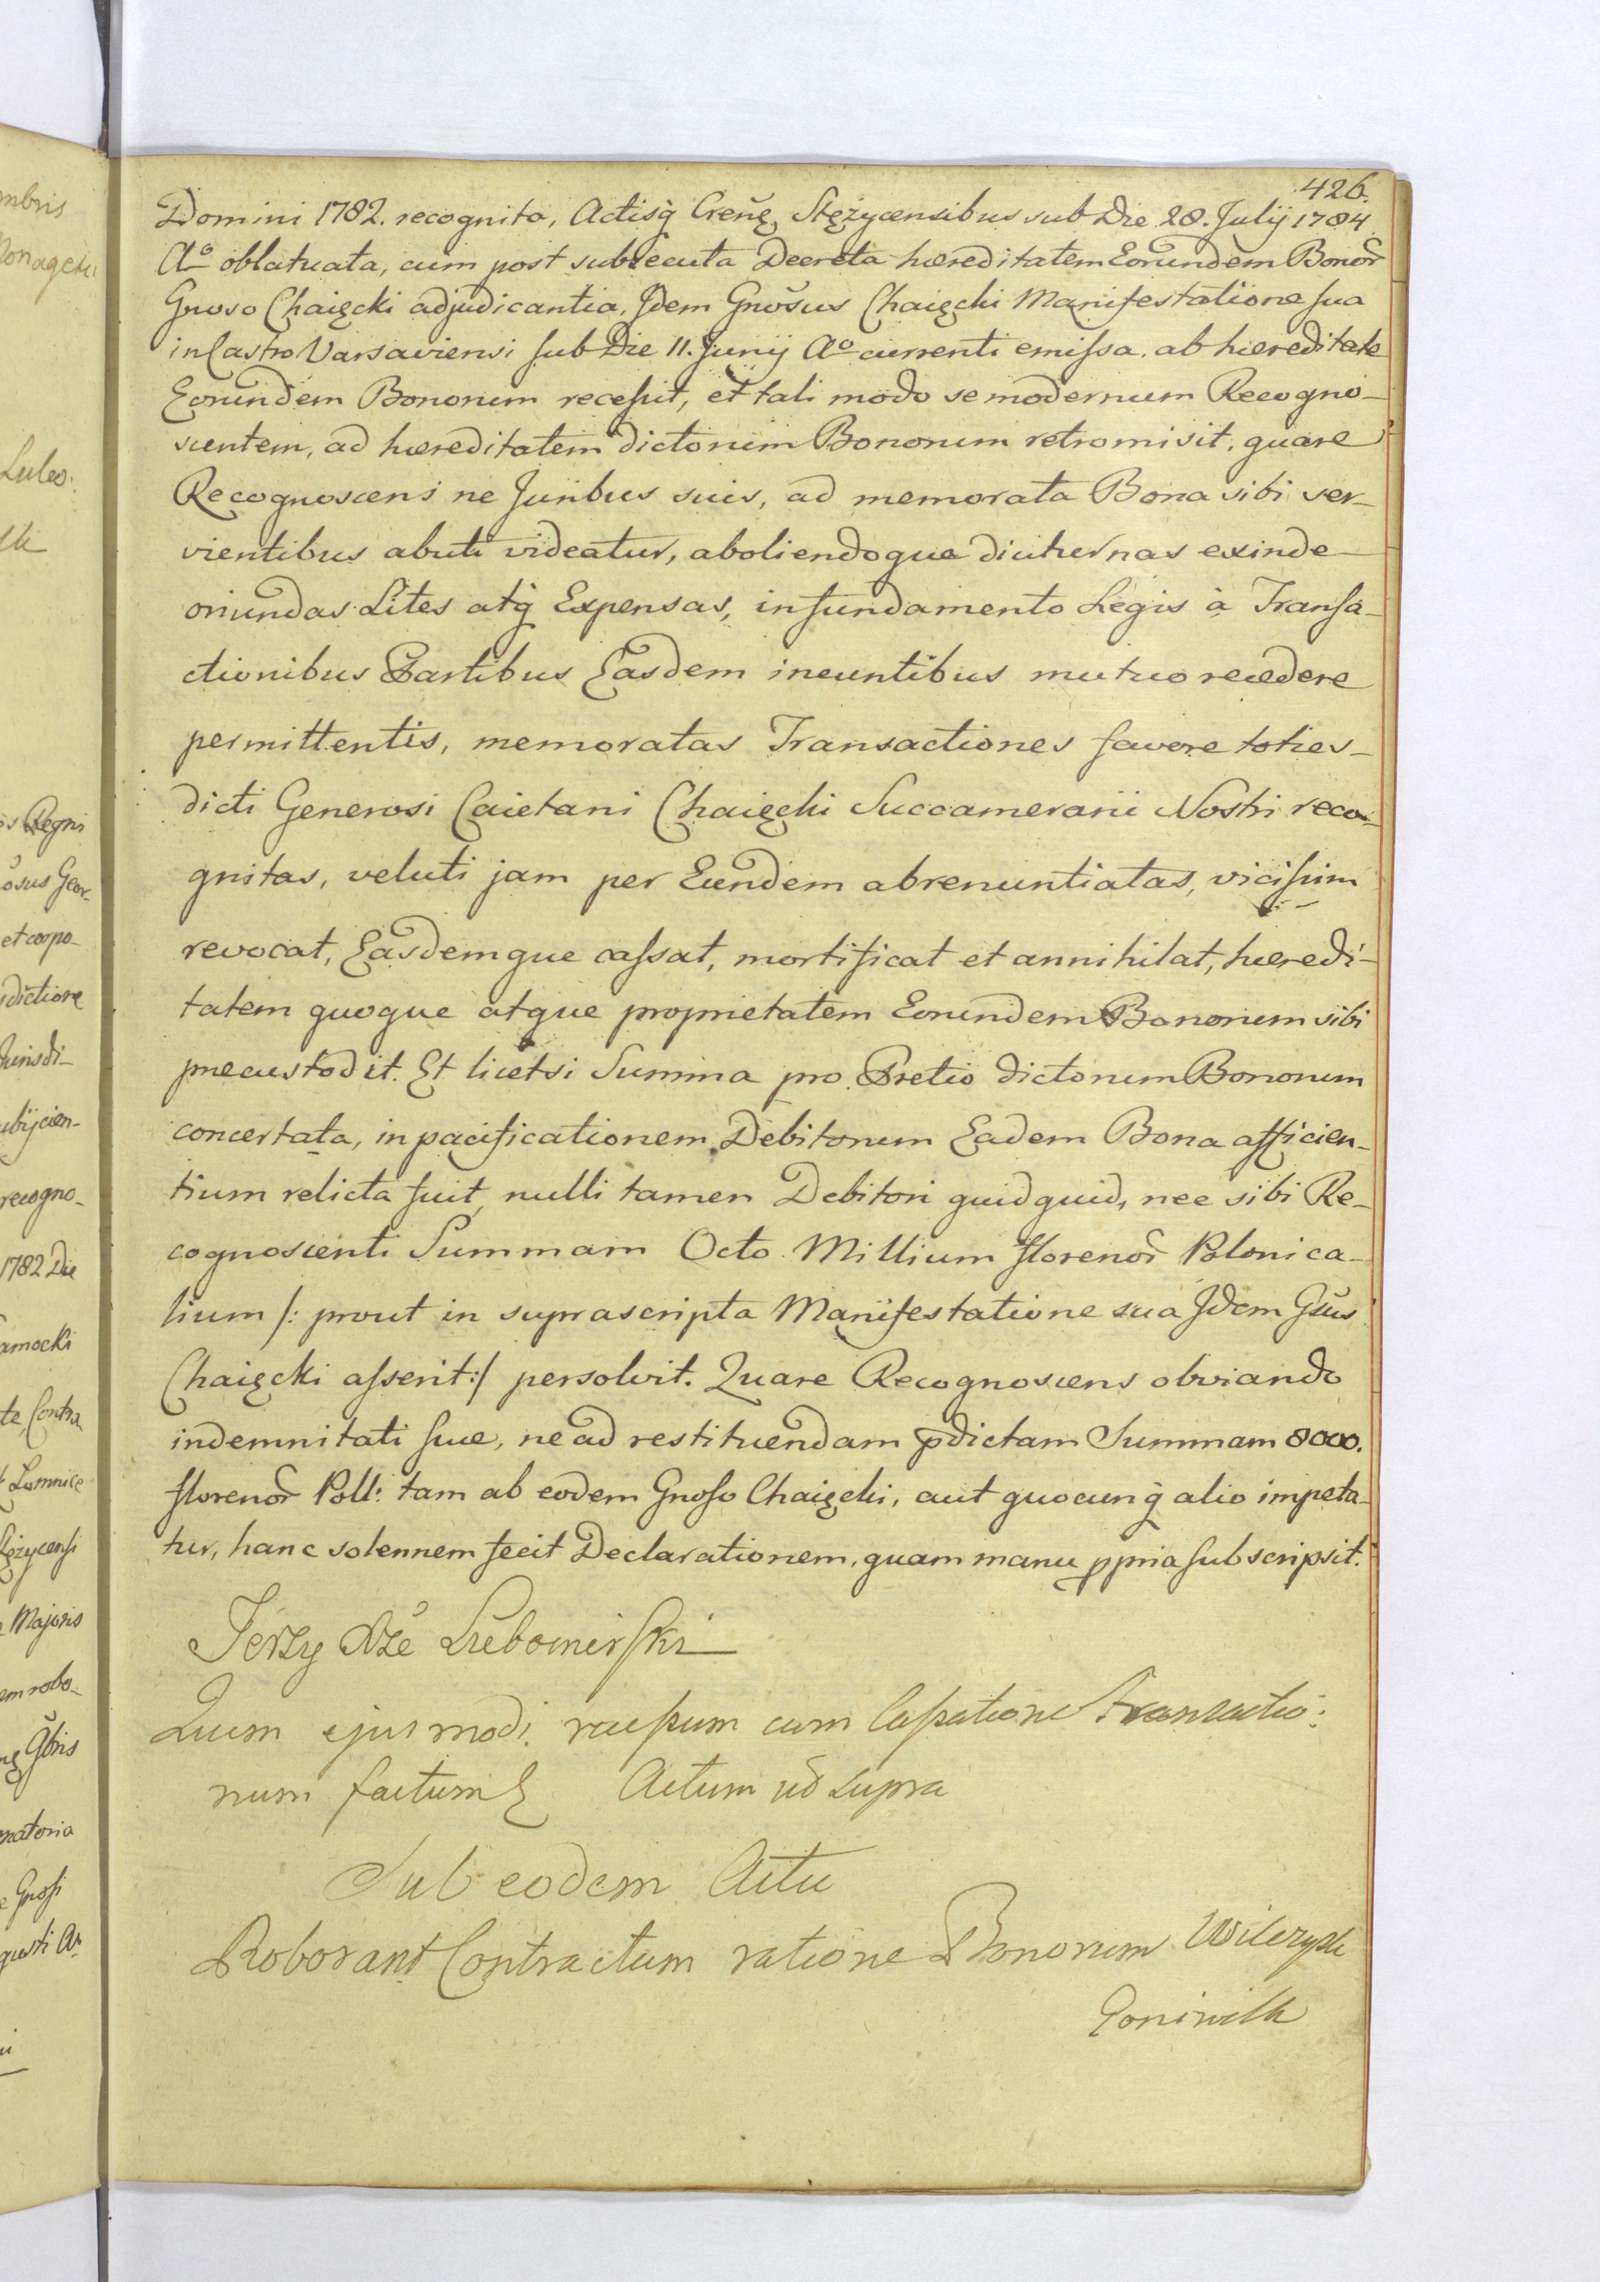 426.
Domini 1782. recognito, Actisq̀ Creñę Stężycensibus sub Die 28. Julij 1784
Aº oblatuata, cum post subsecuta Decreta hæreditatem Eorundem Bonor̃
Gnoso Chaięcki adjudicantia, Jdem Gnosus Chaięcki Manifestatione sua
in Castro Varsaviensi sub Die 11. Junij Aº currenti emissa, ab hæreditate
Eorundem Bonorum recessit, et tali modo se modernum Recogno-
scentem, ad hæreditatem dictorum Bonorum retromisit, quare
Recognoscens ne Juribus suis, ad memorata Bona sibi ser-
vientibus abuti videatur, aboliendoque diuturnas exinde
oriundas Lites atq̀ Expensas, in fundamento Legis à Transa-
ctionibus Partibus Easdem ineuntibus mutuo recedere
permittentis, memoratas Transactiones favore toties-
dicti Generosi Caietani Chaięcki Succamerarii Nostri reco-
gnitas, veluti jam per Eundem abrenuntiatas, vicissim
revocat, Easdemque cassat, mortificat et annihilat, hæredi-
tatem quoque atque proprietatem Eorundem Bonorum sibi
præcustodit. Et licetsi Summa pro Pretio dictorum Bonorum
concertata, in pacificationem Debitorum Eadem Bona afficien-
tium relicta fuit, nulli tamen Debitori quidquid, nec sibi Re-
cognoscenti Summam Octo Millium florenor̃ Polonica-
lium /: prout in suprascripta Manifestatione sua Jdem Gsus
Chaięcki asserit :/ persolvit. Quare Recognoscens obviando
indemnitati suæ, ne ad restituendam p̄dictam Summam 8000.
florenor̃ Poll: tam ab eodem Gnoso Chaięcki, aut quocunq̀ alio impeta-
tur, hanc solennem fecit Declarationem, quam manu ppria subscripsit.
Jerzy Xże Lubomirski
Quem ejusmodi recessum cum Cassatione Transactio:
num factum Actum ut supra
Sub eodem Actu
Roborant Contractum ratione Bonorum
mbris
Luleo.
is Regni
osus Geor-
et corpo-
dictione
Jurisdi-
ubijcien-
recogno-
1782 Die
amocki
te Contra
Majoris
em robo-
natoria
Gnosi